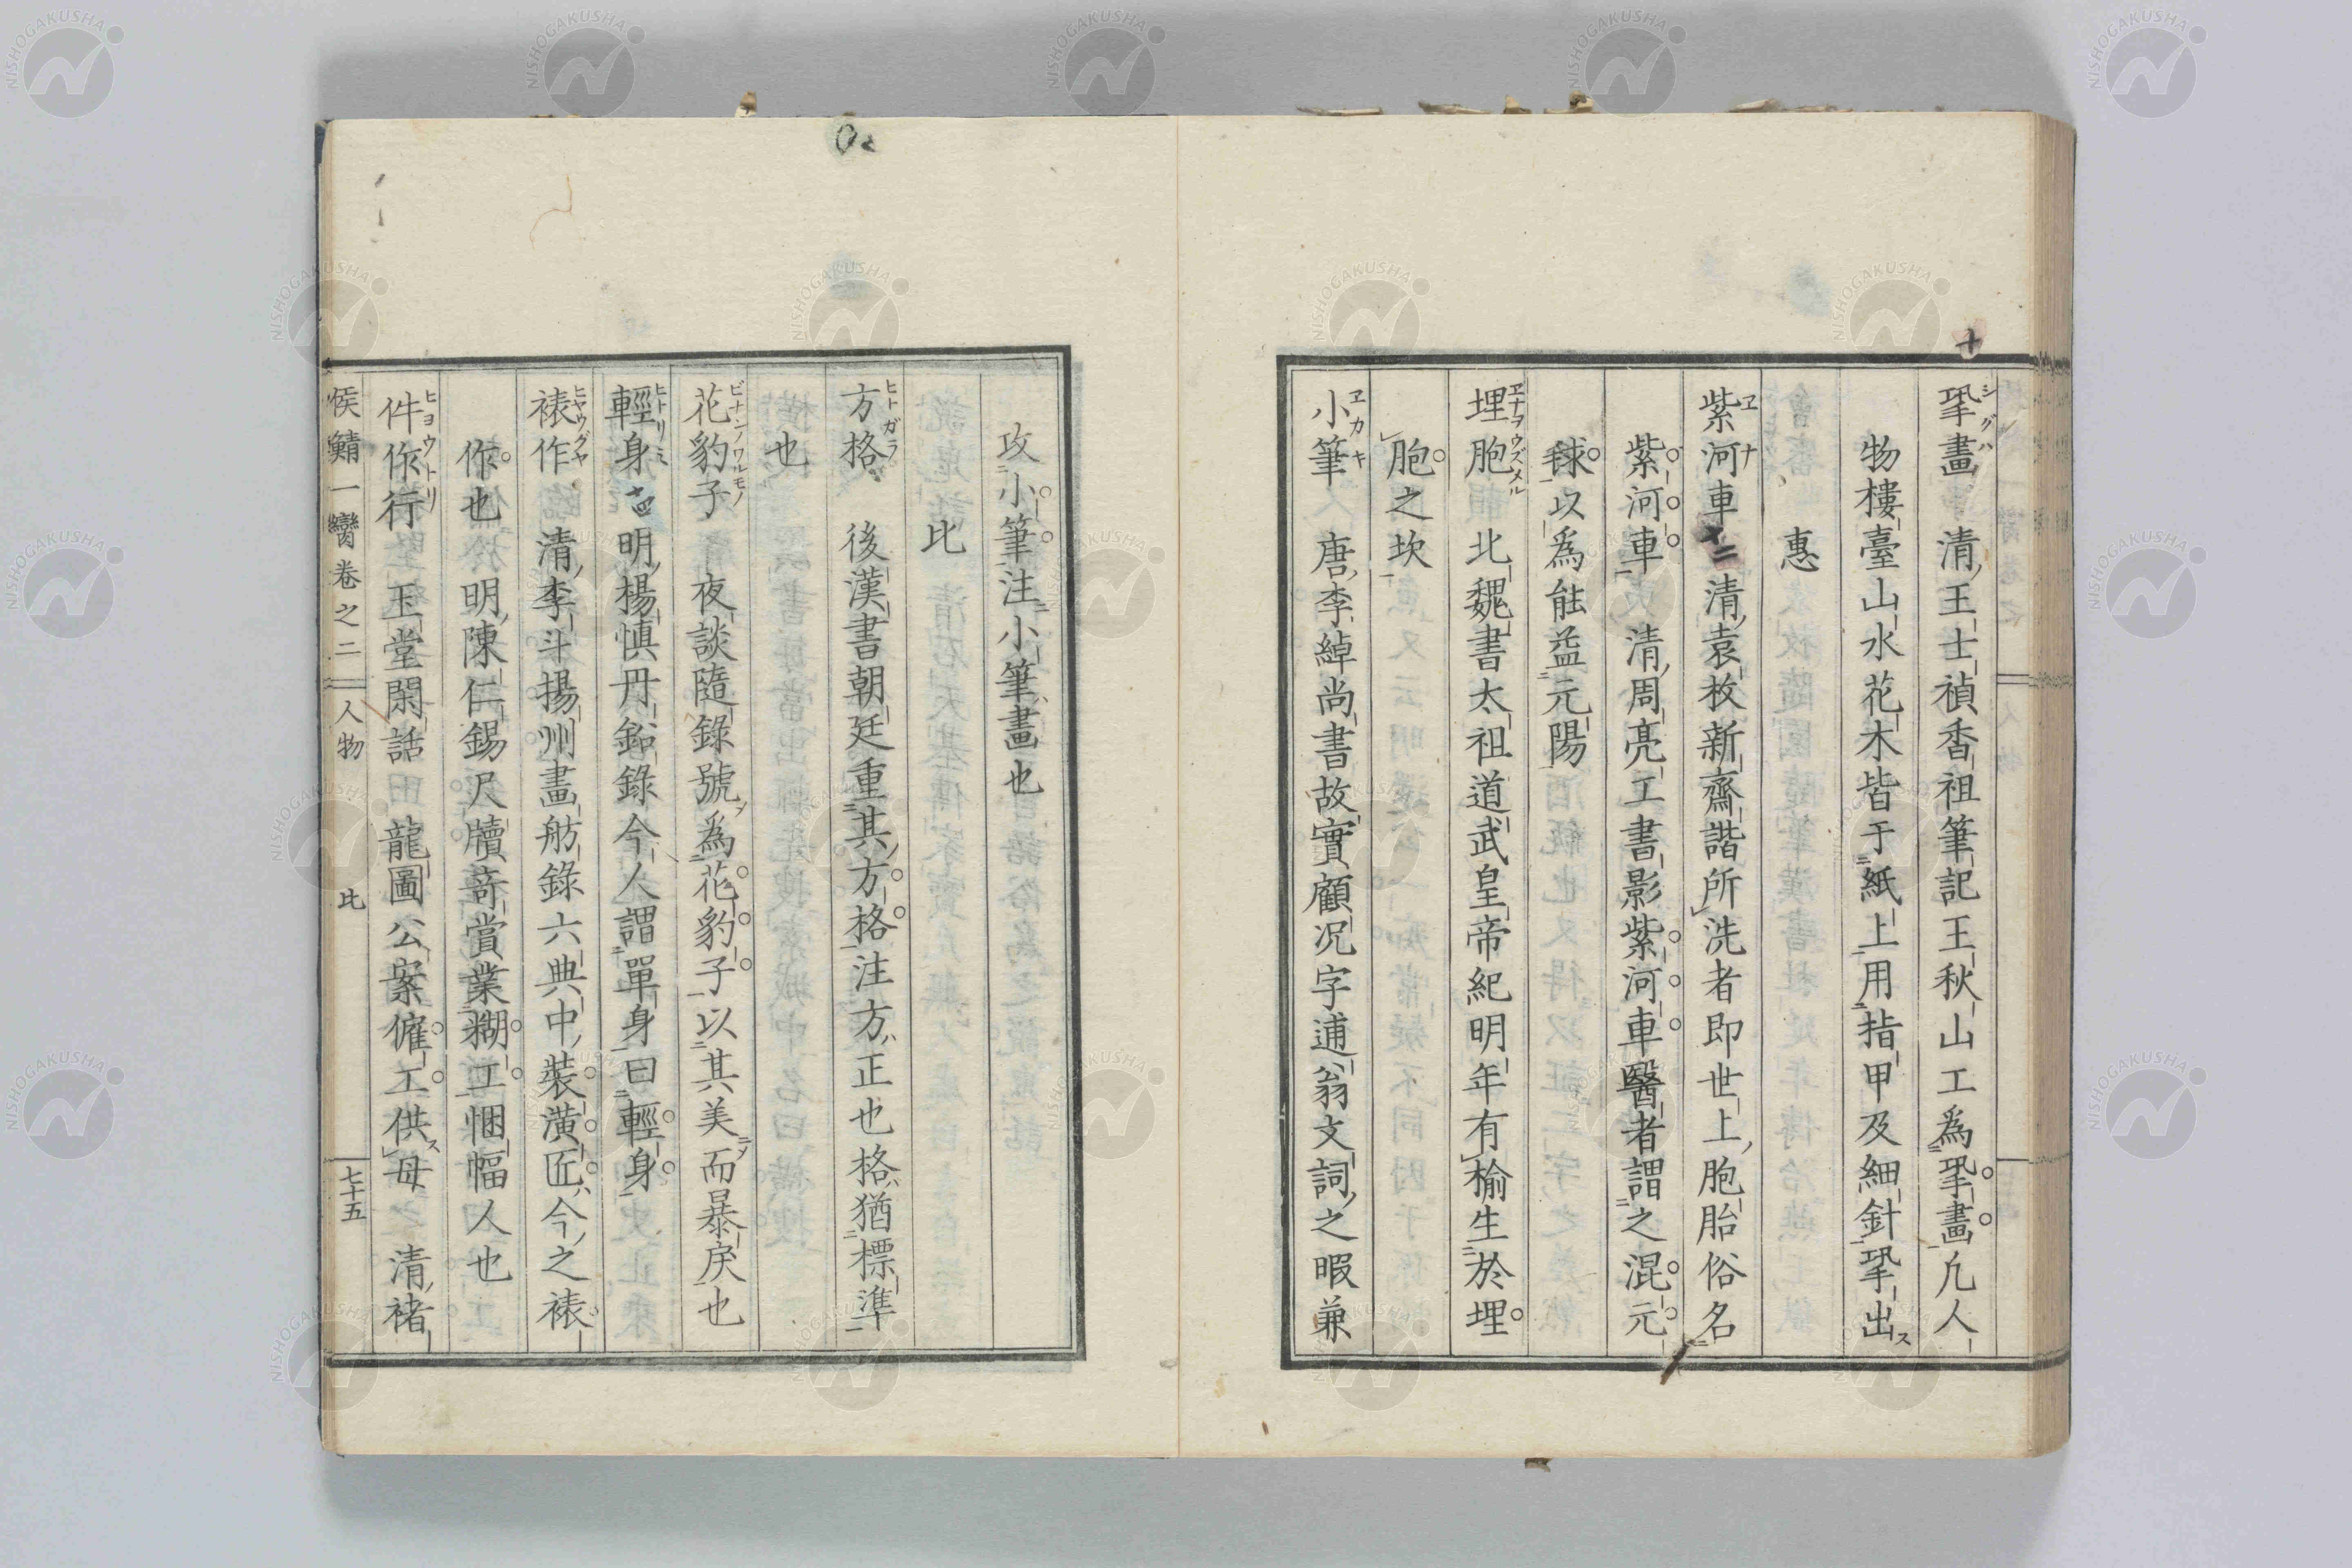 鞏畫 清王士禎香祖筆記王秋山工為鞏畫凢人
物樓臺山水花木皆于紙上用指甲及細針鞏出
惠
紫河車 清袁枚新齋諧所洗者即世上胞胎俗名
紫河車 清周亮工書影紫河車醫者謂之混元
毬以為能益元陽
埋胞 北魏書太祖道武皇帝紀明年有榆生於埋
胞之坎
小筆 唐李綽尚書故實顧况字逋翁文詞之暇兼
攻小筆注小筆畫也
比
方格 後漢書朝廷重其方格注方正也格猶標準
也
花豹子 夜談隨錄號為花豹子以其美而暴戾也
輕身 明楊慎丹鉛錄今人謂單身曰輕身
裱作 清李斗揚州畫舫錄六典中裝潢匠今之裱
作也 明陳仁錫尺牘竒賞業糊工悃幅人也
件作行 玉堂閑話 龍圖公案僱工供母 清褚
侯鯖一臠卷之二 人物 比 七十五